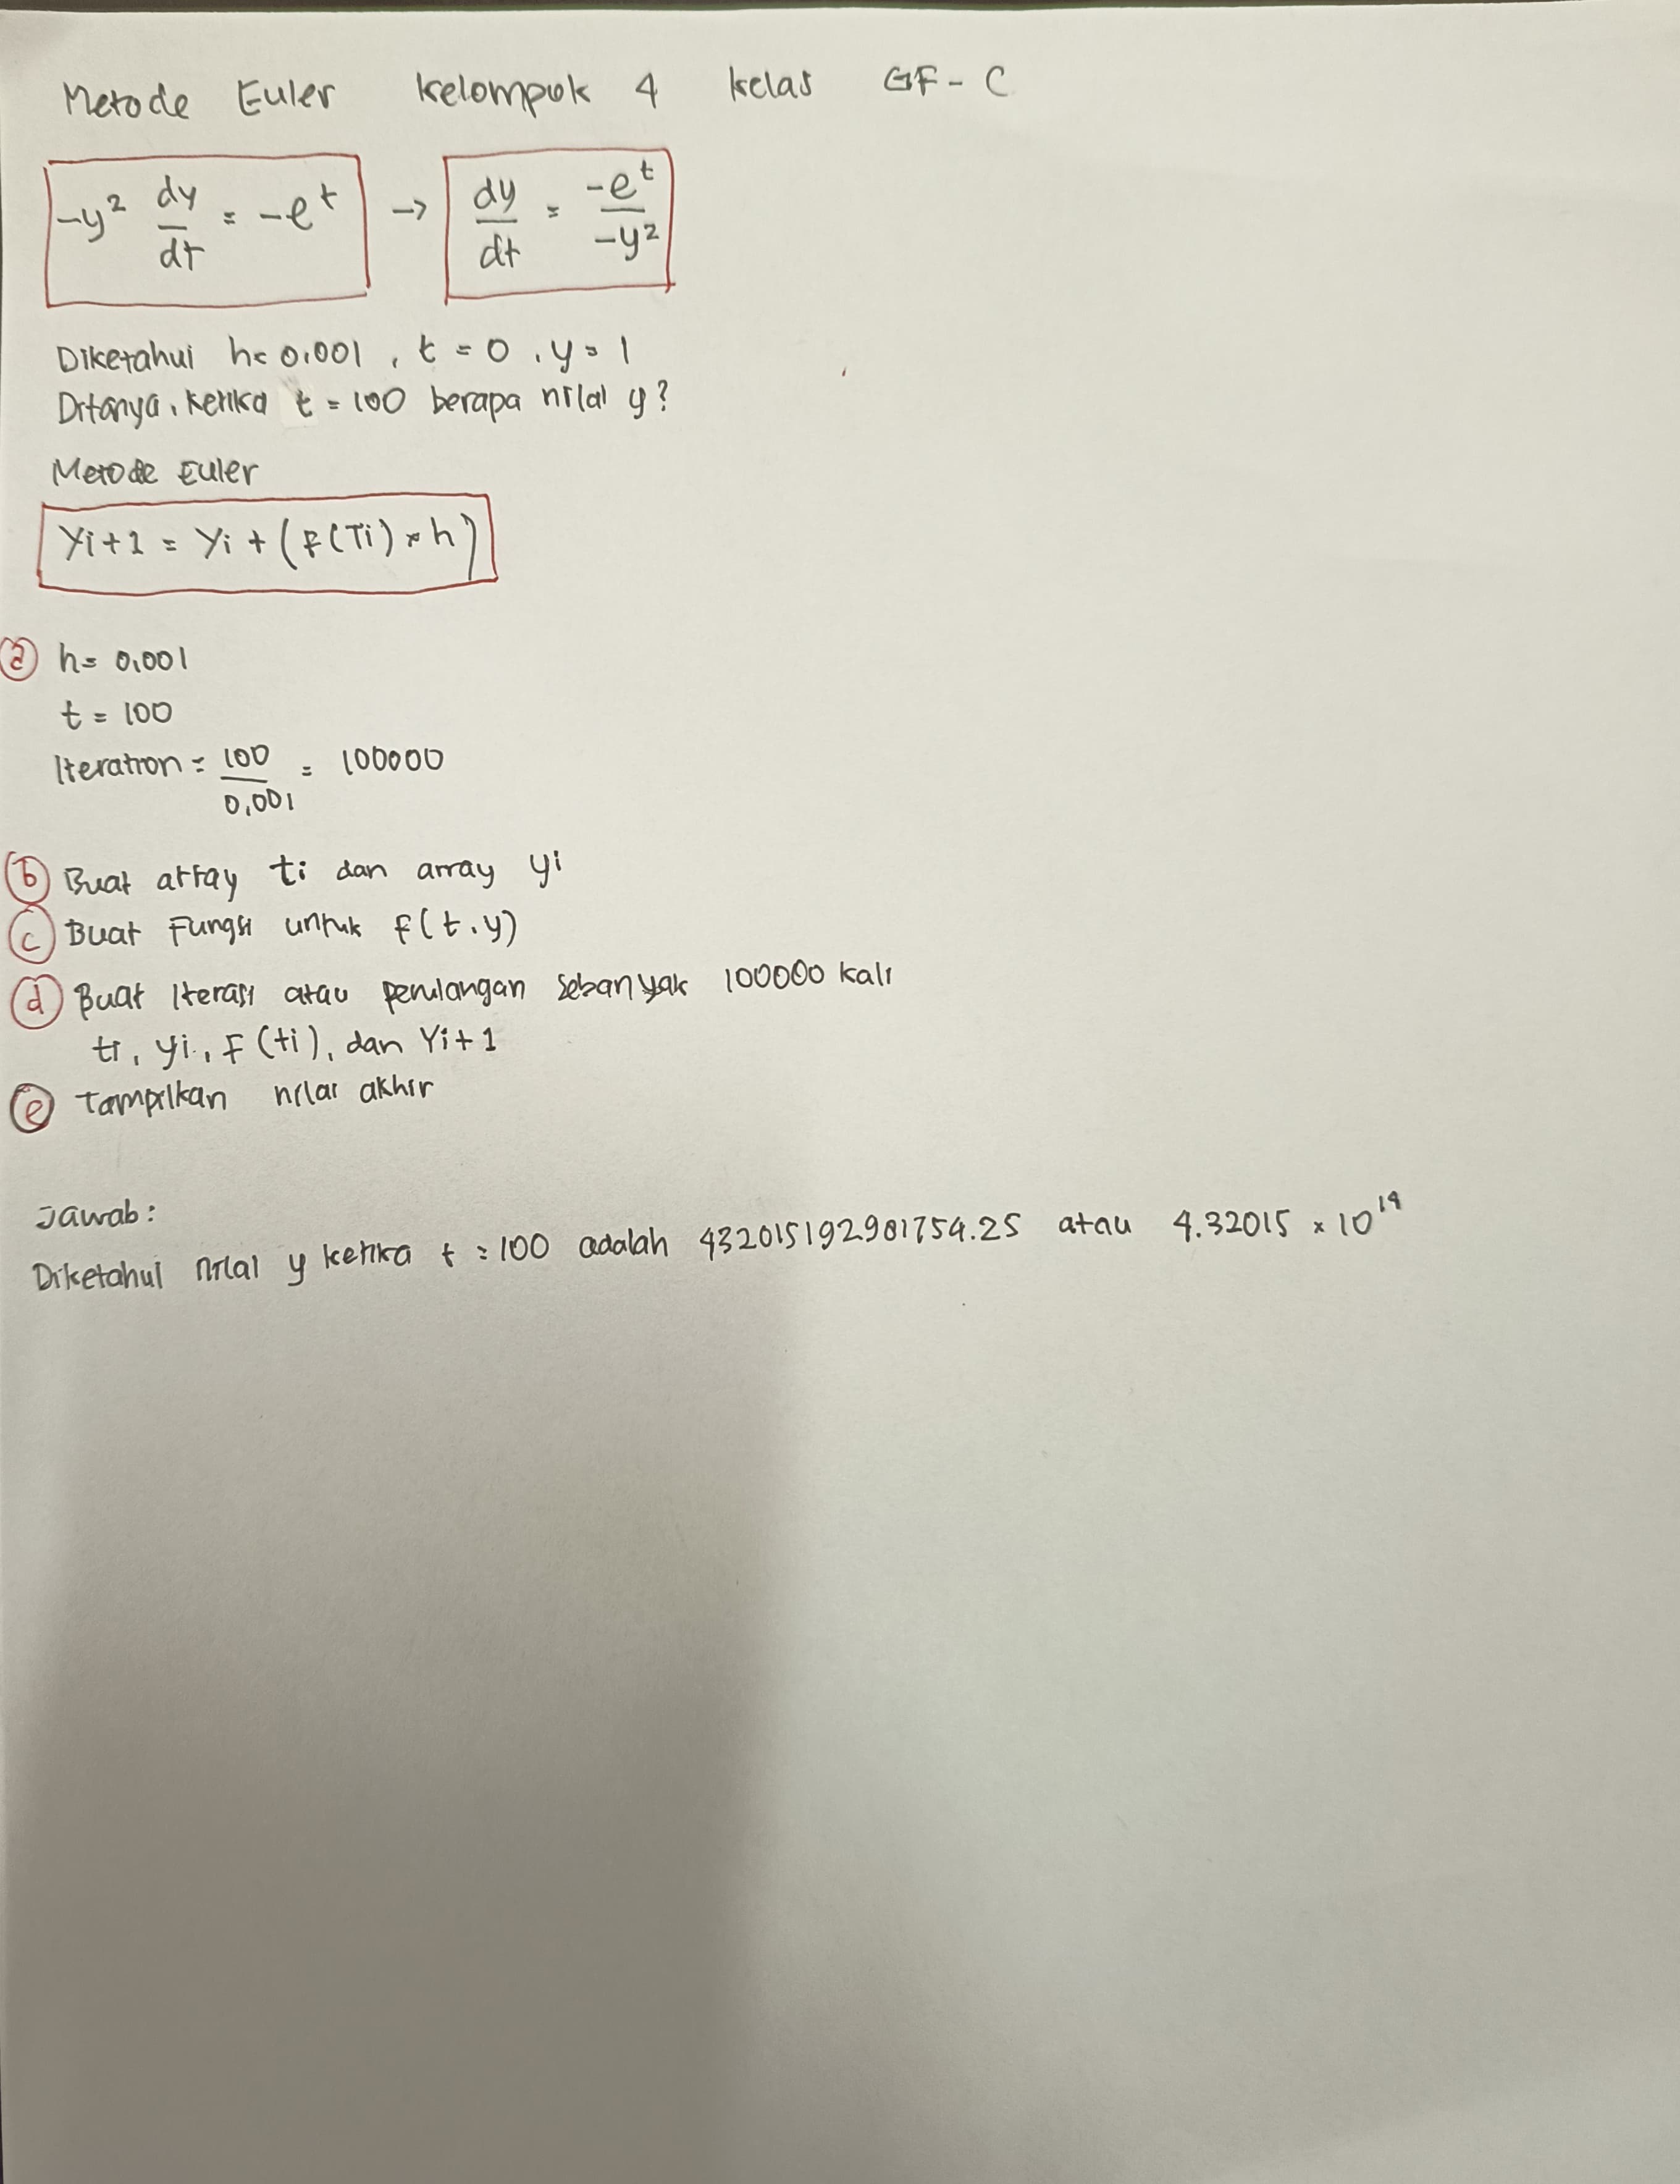 Metode Euler Kelompok 4 Kelas GF-C
-y² dy/dt = -e^t → dy/dt = -e^t/-y²
Diketahui h= 0,001, t = 0, y = 1
Ditanya, ketika t = 100 berapa nilai y?
Metode Euler
Yi+1 = Yi + (F(Ti) × h)
a h= 0,001
t = 100
Iteration = 100/0,001 = 100000
b Buat array ti dan array yi
c Buat Fungsi untuk f(t,y)
d Buat Iterasi atau perulangan sebanyak 100000 kali
ti, yi, F(ti), dan Yi+1
e Tampilkan nilai akhir
Jawab:
Diketahui nilai y ketika t = 100 adalah 432015192981754.25 atau 4.32015 × 10¹⁴